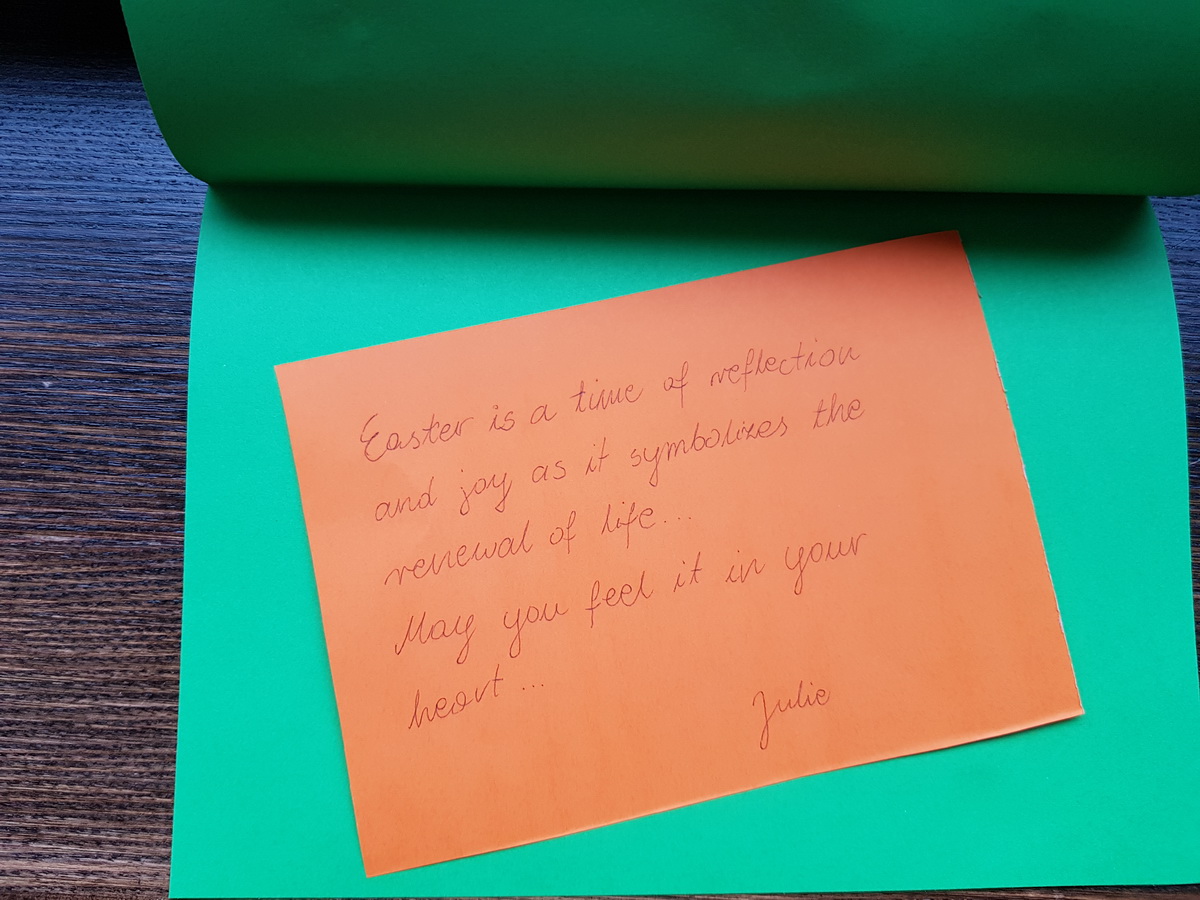 Easter is a time of reflection
and joy as it symbolizes the
renewal of life...
May you feel it in your
heart...
Julie